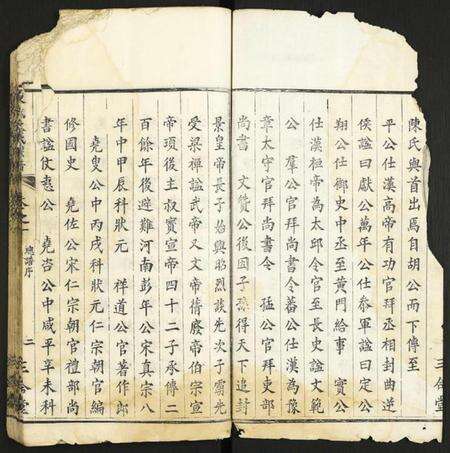 陳氏與首出馬自胡公而下傳至
平公仕漢高帝有功官拜丞相封曲逆
侯諡曰獻公萬年公仕叅軍諡曰定公
翔公仕御史中丞至黃門給事 實公
仕漢桓帝為太邱令官至長史諡文範
公 羣公官拜尚書令蕃公仕漢為豫
章太守官拜尚書令 猛公官拜吏部
尚書 文贊公後因子孫得天下追封
景皇帝長子始興昭烈談先次子霸先
受梁禪諡武帝又文帝蒨廢帝伯宗宣
帝頊後主叔寶宣帝四十二子承傳二
百餘年後避難河南彭年公宋真宗八
年中甲辰科狀元 祥道公官著作郎
堯叟公中丙戌科狀元仁宗朝官編
修國史 堯佐公宋仁宗朝官禮部尚
書諡文惠公 堯咨公中咸平辛未科
總譜序
二
三合堂